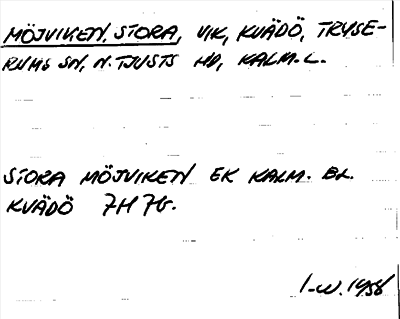 MÖJVIKEN, STORA, VIK, KVÄDÖ, TRYSE-
RUMS SN, N. TJUSTS HD, KALM. L.
STORA MÖJVIKEN EK KALM. BL.
KVÄDÖ 7H 7G.
I-W. 1958